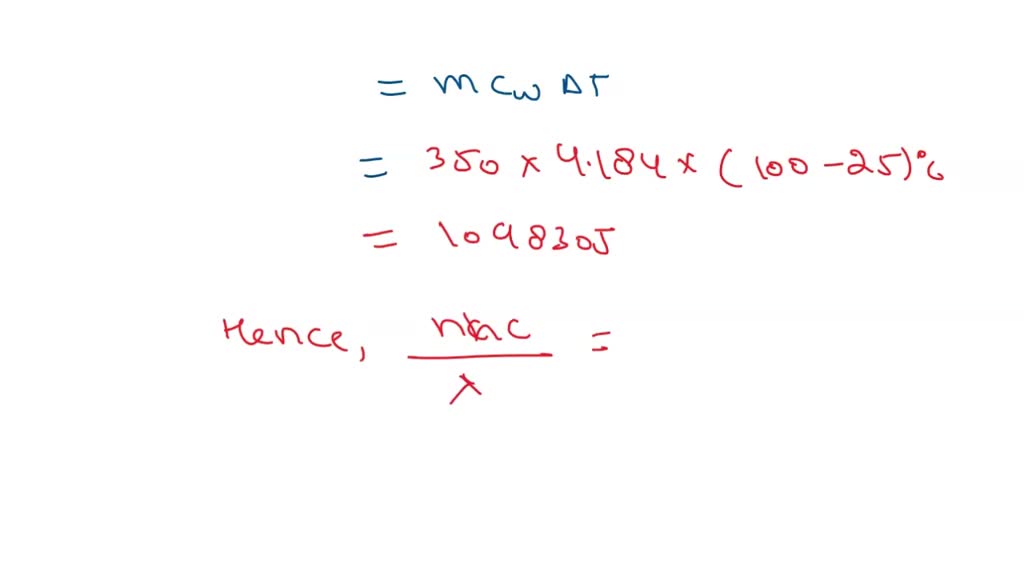 = m Cw ΔT
= 350 × 4.184 × (100 - 25)°C
= 109830J
Hence, nhc / λ =